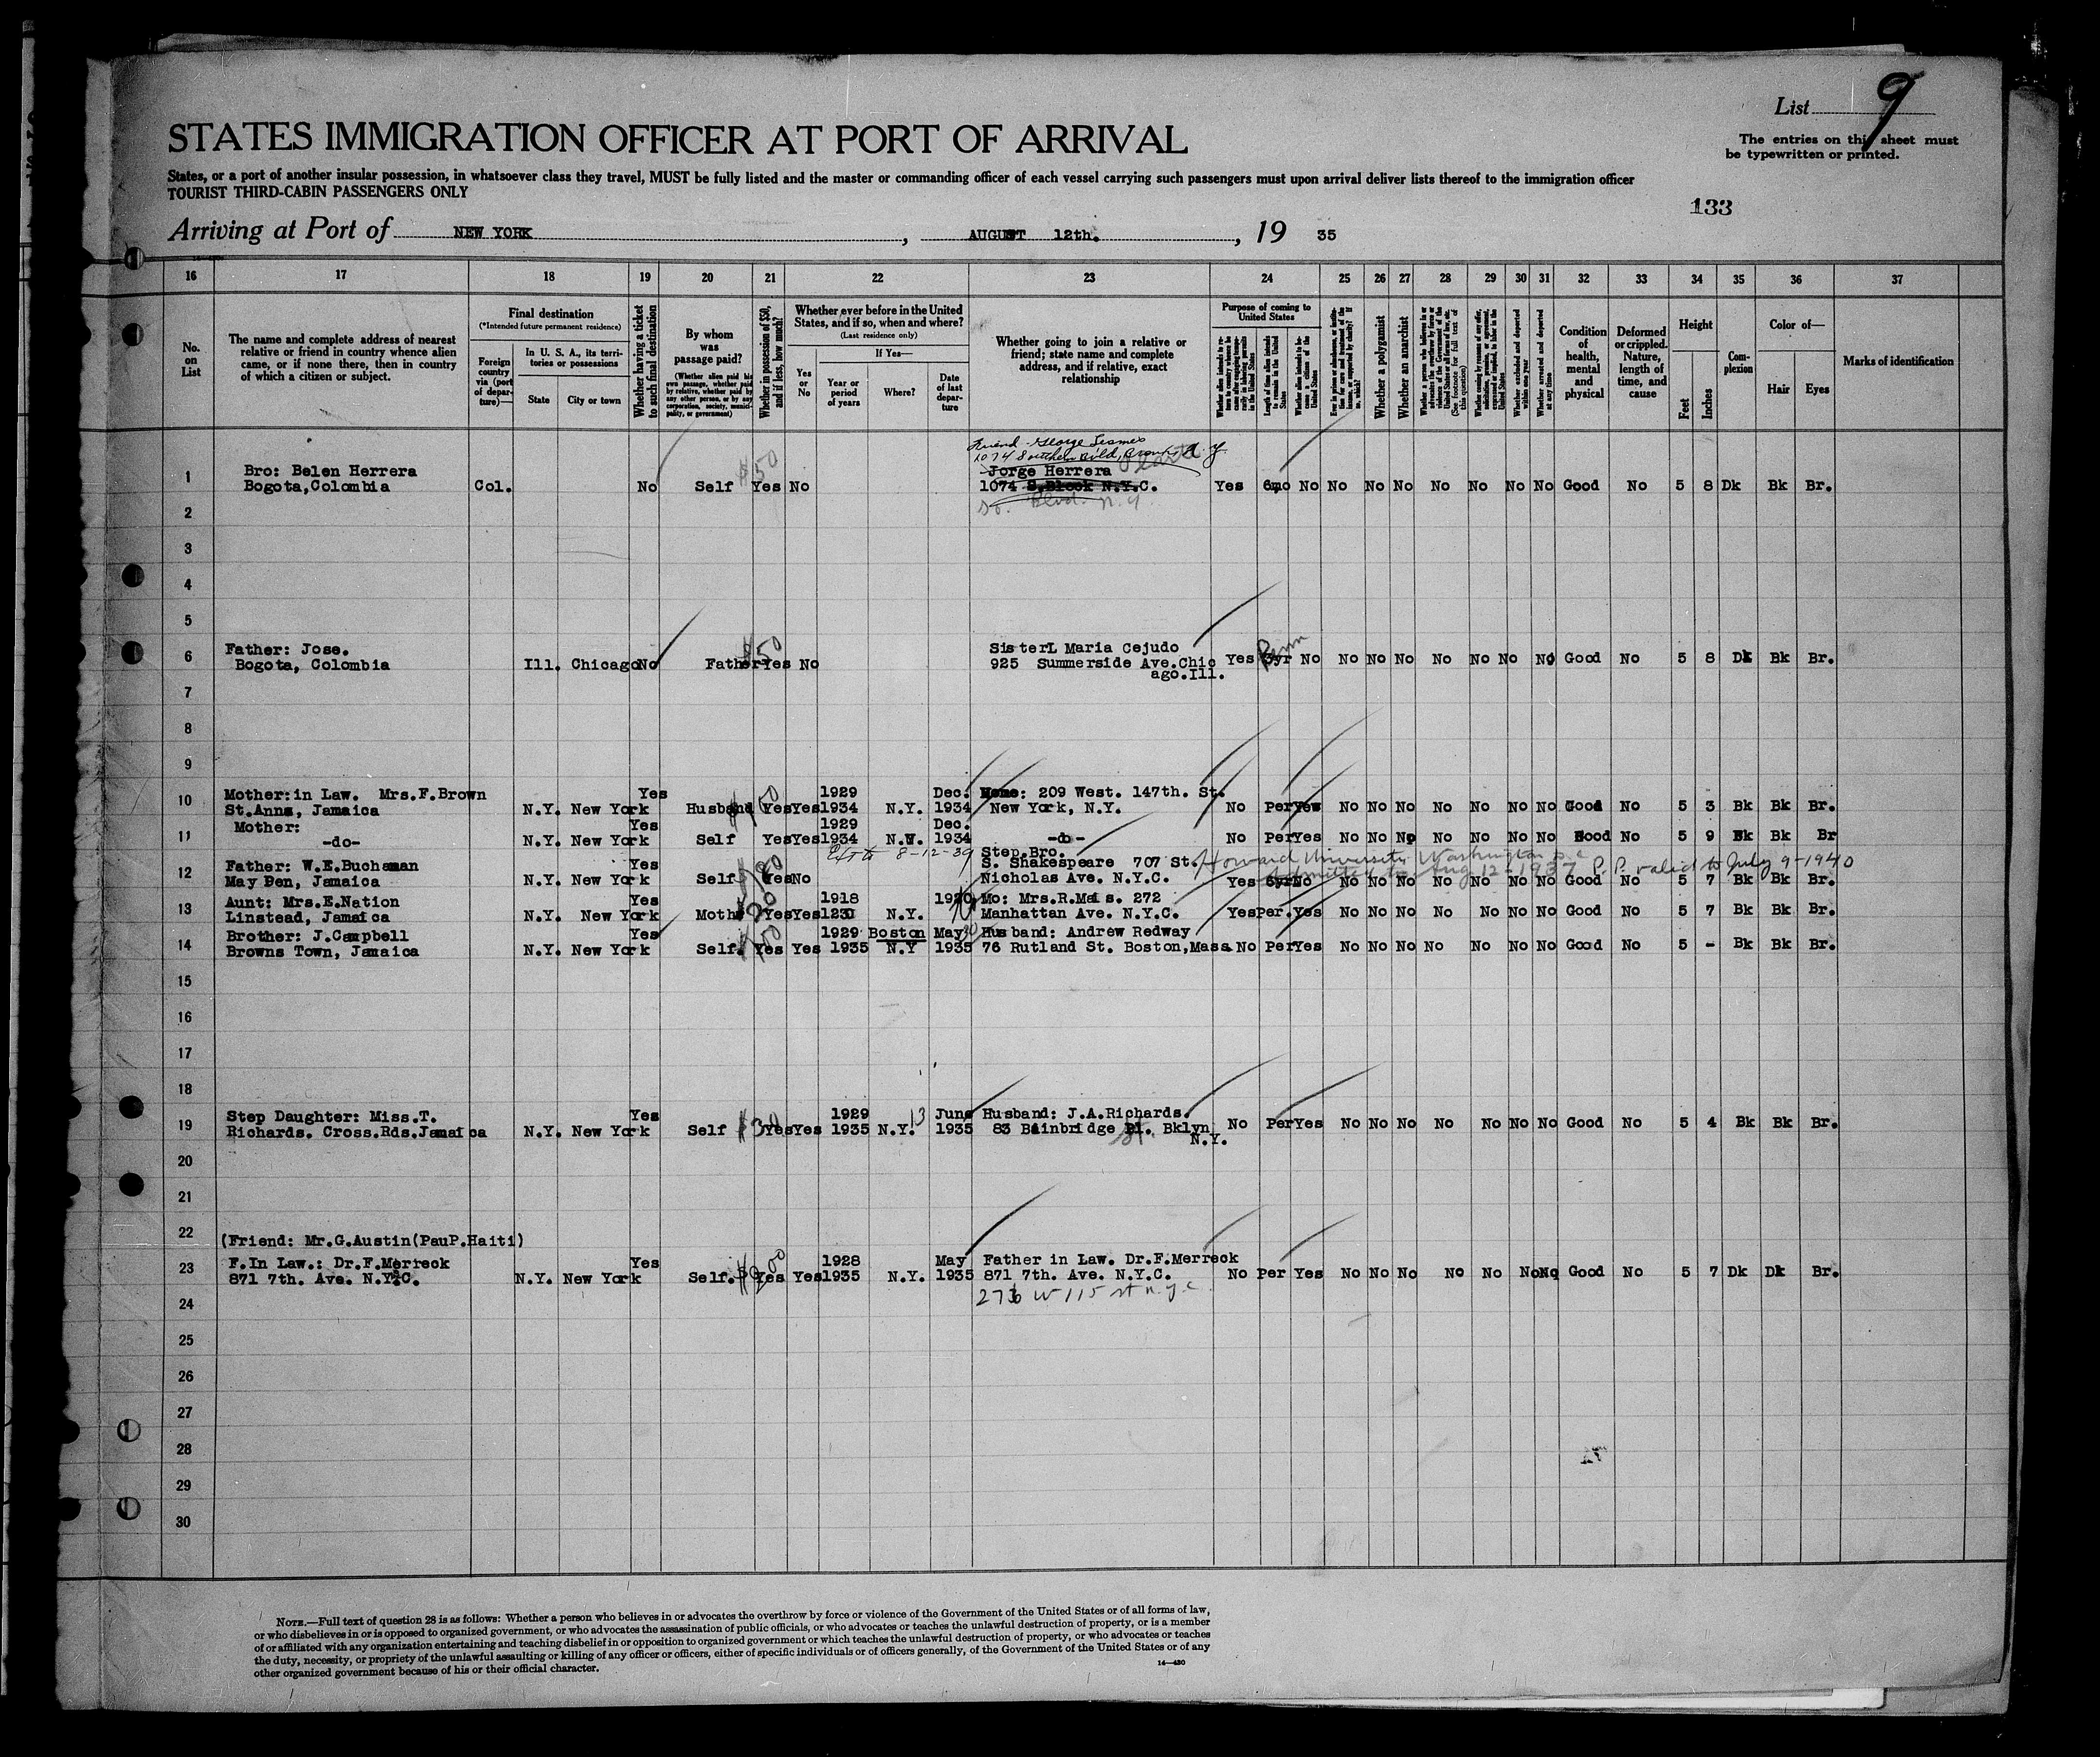 List 9
STATES IMMIGRATION OFFICER AT PORT OF ARRIVAL
The entries on this sheet must
be typewritten or printed.
States, or a port of another insular possession, in whatsoever class they travel, MUST be fully listed and the master or commanding officer of each vessel carrying such passengers must upon arrival deliver lists thereof to the immigration officer
TOURIST THIRD-CABIN PASSENGERS ONLY
133
Arriving at Port of NEW YORK, AUGUST 12th., 19 35
16 17 18 19 20 21 22 23 24 25 26 27 28 29 30 31 32 33 34 35 36 37
No. on List
The name and complete address of nearest relative or friend in country whence alien came, or if none there, then in country of which a citizen or subject.
Final destination
(*Intended future permanent residence)
Foreign country via (port of departure)—
In U. S. A., its territories or possessions
State
City or town
Whether having a ticket to such final destination
By whom was passage paid?
(Whether alien paid his own passage, whether paid by relative, whether paid by any other person, or by any corporation, society, municipality, or government)
Whether in possession of $50, and if less, how much?
Whether ever before in the United States, and if so, when and where?
(Last residence only)
Yes or No
If Yes—
Year or period of years
Where?
Date of last departure
Whether going to join a relative or friend; state name and complete address, and if relative, exact relationship
Purpose of coming to United States
Length of time alien intends to remain in the United States
Whether alien intends to become a citizen of the United States
Whether a polygamist
Whether an anarchist
Whether excluded and deported within one year
Whether arrested and deported at any time
Condition of health, mental and physical
Deformed or crippled. Nature, length of time, and cause
Height
Feet
Inches
Complexion
Color of—
Hair
Eyes
Marks of identification
Friend George
1074 Southern Blvd, Bronx, N.Y
1 Bro: Belen Herrera $50 Jorge Herrera
Bogota,Colombia Col. No Self Yes No 1074 S.Block N.Y.C. Yes 6mo No No No No No No No No Good No 5 8 Dk Bk Br.
So. Blvd. N.Y.
2
3
4
5
6 Father: Jose. $50 SisterL Maria Cejudo Perm
Bogota, Colombia Ill. Chicago No Father Yes No 925 Summerside Ave.Chic Yes 3yr No No No No No No No No Good No 5 8 Dk Bk Br.
ago.Ill.
7
8
9
10 Mother:in Law. Mrs.F.Brown Yes 1929 Dec. Home: 209 West. 147th. St.
St.Anns, Jamaica N.Y. New York Husband Yes Yes 1934 N.Y. 1934 New York, N.Y. No Per Yes No No No No No No No Good No 5 3 Bk Bk Br.
11 Mother: Yes 1929 Dec.
-do- N.Y. New York Self Yes Yes 1934 N.Y. 1934 -do- No Per Yes No No No No No No No Good No 5 9 Bk Bk Br
8-12-39 Step Bro.
12 Father: W.E.Buchanan Yes S. Shakespeare 707 St. Howard University Washington D.C. P.P. valid to July 9-1940
May Pen, Jamaica N.Y. New York Self Yes No Nicholas Ave. N.Y.C. admitted to Aug 12-1937 Yes 5yr No No No No No No No No Good No 5 7 Bk Bk Br.
13 Aunt: Mrs.E.Nation Yes $20 1918 Mo: Mrs.R.Mais. 272
Linstead, Jamaica N.Y. New York Moth. Yes Yes N.Y. Manhattan Ave. N.Y.C. Yes Per. Yes No No No No No No No Good No 5 7 Bk Bk Br.
14 Brother: J.Campbell Yes 1929 Boston May Husband: Andrew Redway
Browns Town, Jamaica N.Y. New York Self. Yes Yes 1935 N.Y 1935 76 Rutland St. Boston,Mass No Per Yes No No No No No No No Good No 5 - Bk Bk Br.
15
16
17
18
19 Step Daughter: Miss.T. Yes $30 1929 13 June Husband: J.A.Richards.
Richards. Cross.Rds.Jamaica N.Y. New York Self Yes Yes 1935 N.Y. 1935 83 Bainbridge Pl. Bklyn No Per Yes No No No No No No No Good No 5 4 Bk Bk Br.
St. N.Y.
20
21
22 (Friend: Mr.G.Austin(PauP.Haiti)
23 F.In Law.: Dr.F.Merreck Yes 1928 May Father in Law. Dr.F.Merreck
871 7th. Ave. N.Y.C. N.Y. New York Self. $200 Yes Yes 1935 N.Y. 1935 871 7th. Ave. N.Y.C. No Per Yes No No No No No No No Good No 5 7 Dk Dk Br.
W 115 st n.y.c
24
25
26
27
28
29
30
NOTE.—Full text of question 28 is as follows: Whether a person who believes in or advocates the overthrow by force or violence of the Government of the United States or of all forms of law,
or who disbelieves in or is opposed to organized government, or who advocates the assassination of public officials, or who advocates or teaches the unlawful destruction of property, or is a member
of or affiliated with any organization entertaining and teaching disbelief in or opposition to organized government or which teaches the unlawful destruction of property, or who advocates or teaches
the duty, necessity, or propriety of the unlawful assaulting or killing of any officer or officers, either of specific individuals or of officers generally, of the Government of the United States or of any
other organized government because of his or their official character.
14—430